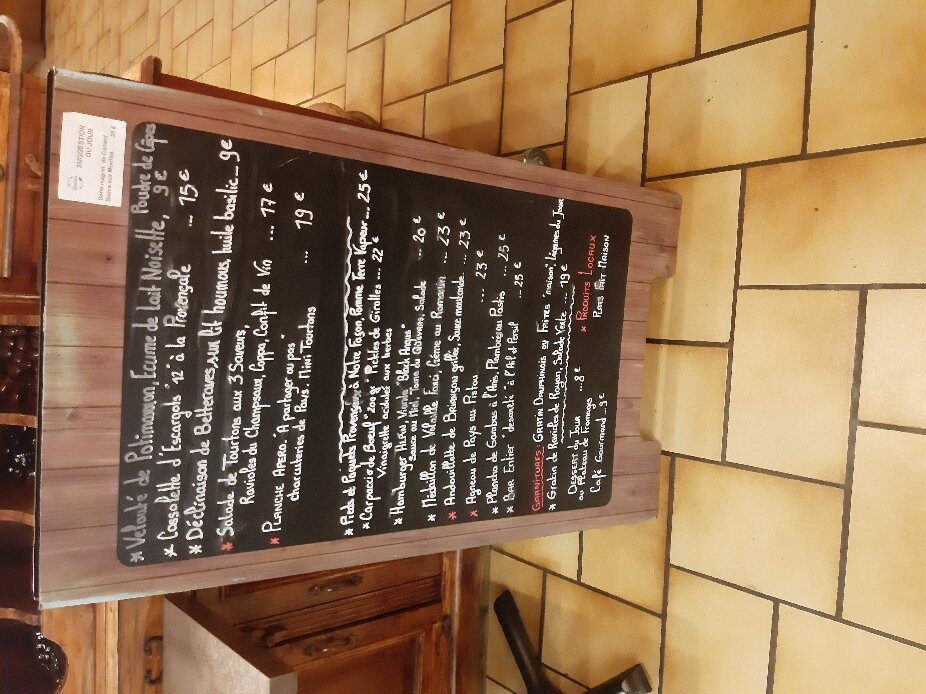 SUGGESTION
DU JOUR
Demi magret de Canard
* Velouté de Potimarron, Ecume de Lait Noisette, Poudre de Cèpes 9 €
* Cassolette d'Escargots "12" à la Provençale ... 15 €
* Déclinaison de Betteraves, sur lit houmous, huile basilic ... 9 €
* Salade de Tourtons aux 3 Saveurs,
Ravioles du Champsaur, Coppa, Confit de Vin ... 17 €
* PLANCHE APERO "A partager ou pas"
charcuteries de Pays, Mini Tourtons ... 19 €
* Pieds et Paquets Provençaux à Notre Façon, Pomme Terre Vapeur ... 25 €
* Carpaccio de Boeuf "200gr" Pickles de Girolles ... 22 €
Vinaigrette acidulée aux herbes
* Hamburger Viande "Black Angus"
Sauce au Miel, Tome du salade ... 20 €
* Médaillon de Volaille Farci, Crème au Romarin ... 23 €
* Andouillette de Briançon grillée, Sauce moutarde ... 23 €
* Agneau de Pays au Pistou ... 23 €
* Plancha de Gambas à l'Anis, Flambées au Pastis ... 25 €
* BAR Entier "desarêté" à l'Ail et Persil ... 25 €
GARNITURES: GRATIN DAUPHINOIS OU FRITES "maison", Légumes du Jour
* Gratin de Ravioles de Royan, Salade Verte ... 19 €
DESSERT du JOUR
ou Plateau de Fromages ... 8 €
Café Gourmand ... 9 €
* PRODUITS LOCAUX
PLATS FAIT MAISON